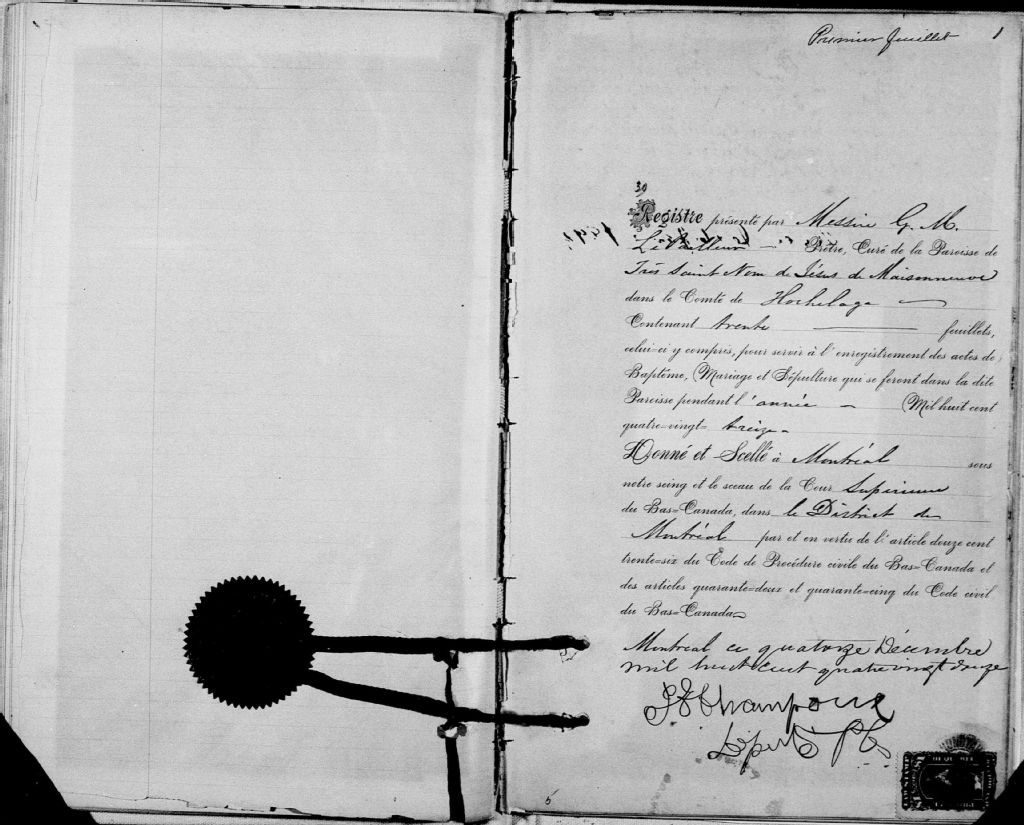 Premier feuillet 1
30
Registre présenté par Messire G. M.
Prêtre, Curé de la Paroisse de
Très Saint Nom de Jésus de Maisonneuve
dans le Comté de Hochelaga
Contenant trente feuillets,
celui-ci y compris, pour servir à l'enregistrement des actes de
Baptême, Mariage et Sépulture qui se feront dans la dite
Paroisse pendant l'année Mil huit cent
quatre=vingt= treize
Donné et Scellé à Montréal sous
notre seing et le sceau de la Cour Supérieure
du Bas=Canada, dans le District de
Montréal par et en vertu de l'article douze cent
trente=six du Code de Procédure civile du Bas=Canada et
des articles quarante=deux et quarante=cinq du Code civil
du Bas=Canada
Montréal ce quatorze Décembre
mil huit cent quatre vingt douze
Champoux
Dép.